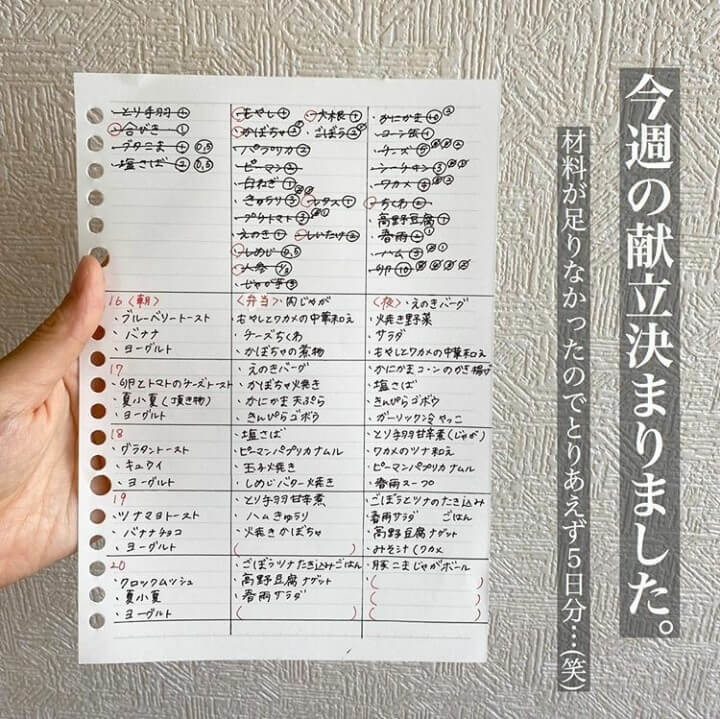 今週の献立決まりました。
材料が足りなかったのでとりあえず5日分…(笑)
とり手羽
合びき ①
ブタこま 0.5
塩さば ② 0.5
もやし
大根 ①
かぼちゃ
ごぼう
パプリカ ②
ピーマン ②
白ねぎ ①
きゅうり ③
レタス ①
プチトマト ③
えのき ①
しいたけ ②
しめじ 0.5
人参
じゃが芋 ③
かにかま
コーン缶 ①
チーズ ⑤
シーチキン ③
ワカメ
ちくわ
高野豆腐 ①
春雨 ②
ハム ③
卵 ⑩
16 〈朝〉
・ブルーベリートースト
・バナナ
・ヨーグルト
〈弁当〉・肉じゃが
・もやしとワカメの中華和え
・チーズちくわ
・かぼちゃの煮物
〈夜〉・えのきバーグ
・焼き野菜
・サラダ
・もやしとワカメの中華和え
17
・卵とトマトのチーズトースト
・夏小夏(頂き物)
・ヨーグルト
・えのきバーグ
・かぼちゃ焼き
・かにかま天ぷら
・きんぴらゴボウ
・かにかまコーンのかき揚げ
・塩さば
・きんぴらゴボウ
・ガーリック冷やっこ
18
・グラタントースト
・キュウイ
・ヨーグルト
・塩さば
・ピーマンパプリカナムル
・玉子焼き
・しめじバター焼き
・とり手羽甘辛煮(じゃが)
・ワカメのツナ和え
・ピーマンパプリカナムル
・春雨スープ
19
・ツナマヨトースト
・バナナチョコ
・ヨーグルト
・とり手羽甘辛煮
・ハムきゅうり
・焼きかぼちゃ
( )
・ごぼうとツナのたき込み
・春雨サラダ ごはん
・高野豆腐ナゲット
・みそ汁(ワカメ
20
・クロックムッシュ
・夏小夏
・ヨーグルト
・ごぼうツナたき込みごはん
・高野豆腐ナゲット
・春雨サラダ
( )
・豚こまじゃがボール
( )
( )
( )